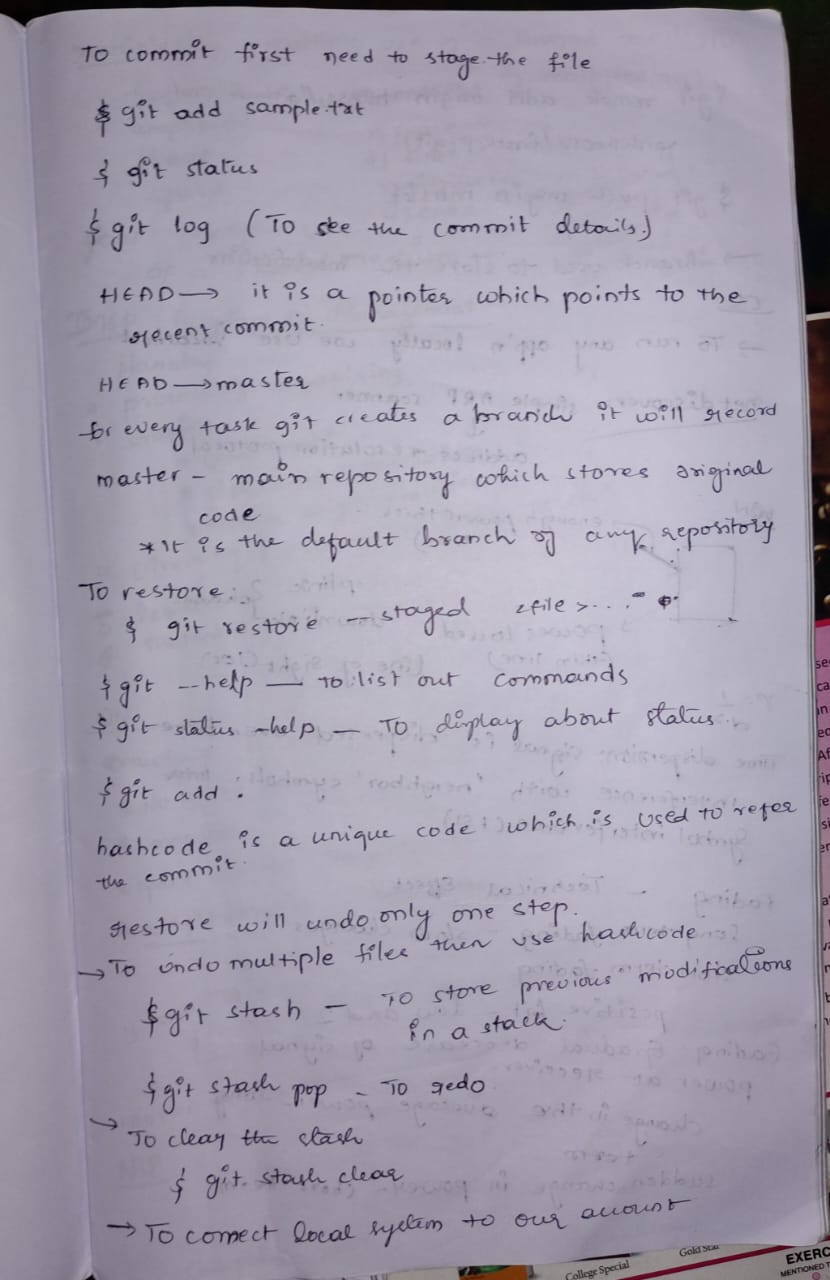 To commit first need to stage the file
$ git add sample.txt
$ git status
$ git log (To see the commit details)
HEAD → it is a pointer which points to the
recent commit.
HEAD → master
for every task git creates a branch it will record
master - main repository which stores original
code
* It is the default branch of any repository
To restore:
$ git restore --staged <file>...
$ git --help — To list out commands
$ git status -help — To display about status
$ git add .
hashcode is a unique code which is used to refer
the commit.
restore will undo only one step.
→ To undo multiple files then use hashcode
$ git stash - To store previous modifications
in a stack.
$ git stash pop - To redo
→ To clear the stash
$ git stash clear
→ To connect local system to our account
College Special
Gold
EXERC
MENTIONED